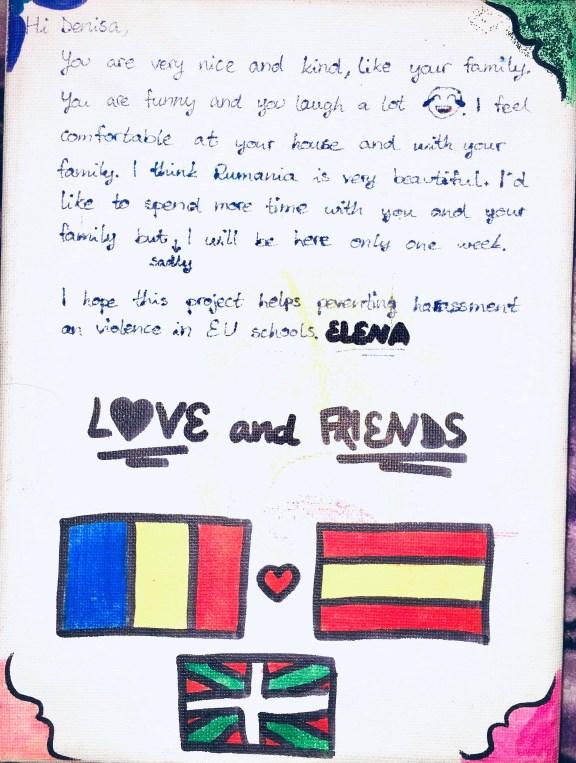 Hi Denisa,
You are very nice and kind, like your family.
You are funny and you laugh a lot 😂. I feel
comfortable at your house and with your
family. I think Rumania is very beautiful. I'd
like to spend more time with you and your
family but, I will be here only one week.
sadly
I hope this project helps peventing harassment
an violence in EU schools. ELENA
LOVE and FRIENDS